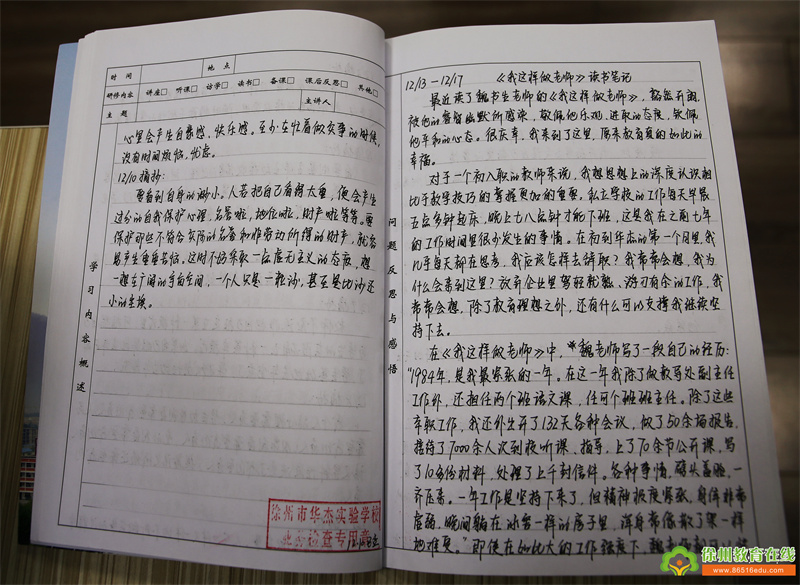 时 间
地 点
研修内容
讲座□ 听课□ 访学□ 读书□ 备课□ 课后反思□ 其他□
主 题
主讲人
学习内容概述
心里会产生自豪感、快乐感。至少在忙着做实事的时候,
没有时间烦恼、忧虑。
12/10摘抄:
要看到自身的渺小。人若把自己看得太重,便会产生
过分的自我保护心理,名誉啦,地位啦,财产啦等等。要
保护那些不符合实际的名誉和非劳动所得的财产,就容
易产生重重苦恼,这时不妨采取一点虚无主义的态度,想
一想广阔的宇宙空间,一个人只是一粒沙,甚至是比沙还
小的尘埃。
徐州市华杰实验学校
业务检查专用章
问题反思与感悟
12/13-12/17 《我这样做老师》读书笔记
最近读了魏书生老师的《我这样做老师》,豁然开朗,
被他的睿智幽默所感染,敬佩他乐观、进取的态度,钦佩
他平和的心态。很庆幸,我来到了这里,原来教育真的如此的
幸福。
对于一个初入职的教师来说,我想思想上的深度认识相
比于教学技巧的掌握更加的重要。私立学校的工作每天早晨
五点多钟起床,晚上七八点钟才能下班,这是我在之前七年
的工作时间里很少发生的事情。在初到华杰的第一个月里,我
几乎每天都在思考,我应该怎样去辞职?我常常会想,我为
什么会来到这里?放弃企业里驾轻就熟、游刃有余的工作,我
常常会想,除了教育理想之外,还有什么可以支撑我继续坚
持下去。
在《我这样做老师》中,魏老师写了一段自己的经历:
“1984年,是我最紧张的一年。在这一年我除了做教导处副主任
工作外,还担任两个班语文课,任两个班班主任。除了这些
本职工作,我还外出开了132天各种会议,做了50余场报告,
接待了7000余人次到校听课、指导,上了70余节公开课,写
了10多份材料,处理了上千封信件。各种事情,劈头盖脸,一
齐压来。一年工作是坚持下来了,但精神极度紧张,身体非常
疲弱,晚间躺在冰窖一样的房子里,浑身常像散了架一样
地难受。”即使在如此大的工作强度下,魏老师
徐州教育在线
www.86516edu.com